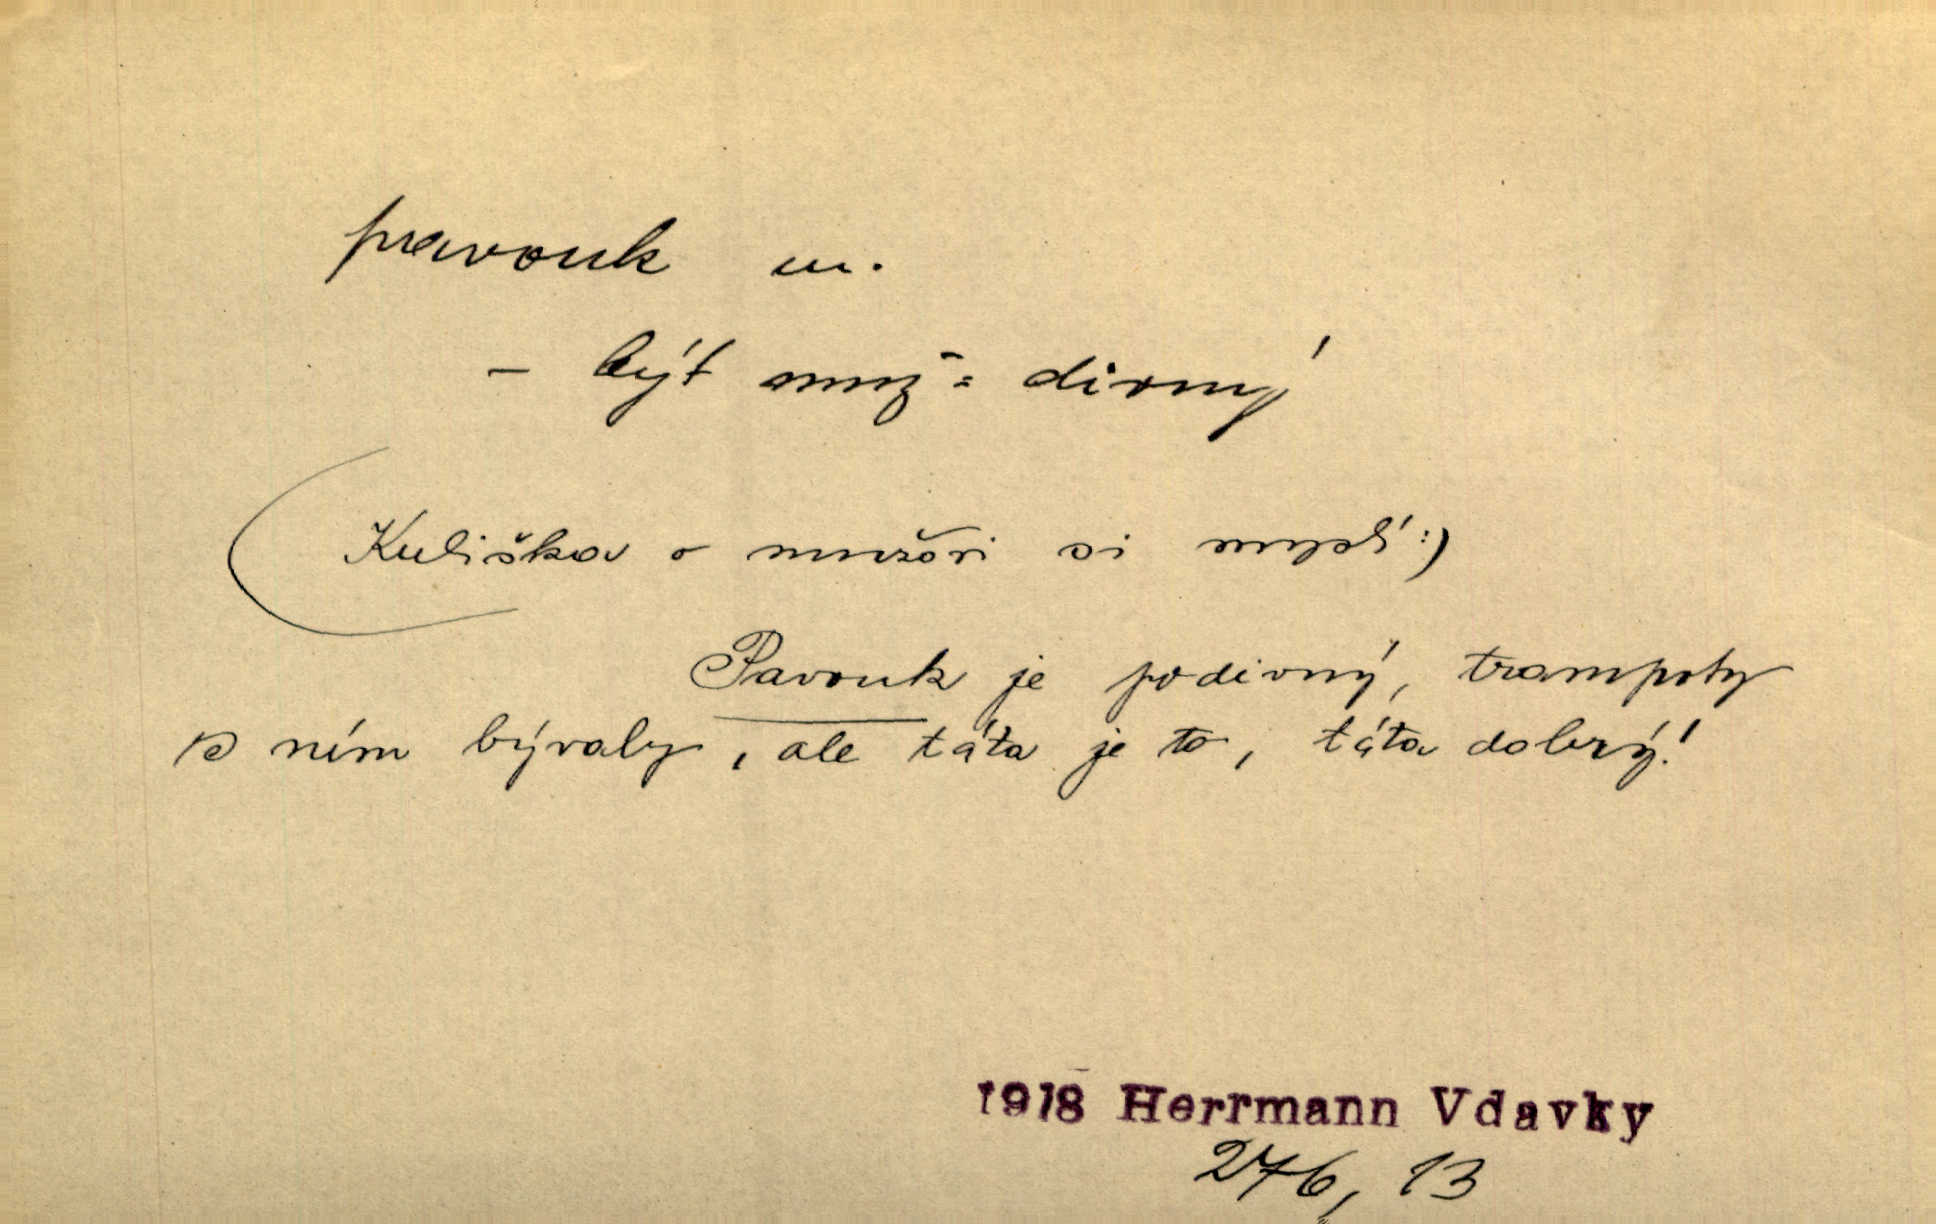 pavouk m.
– být muž = divný
(Kuliška o mužovi si myslí:)
Pavouk je podivný, trampoty
s ním bývaly, ale táta je to, táta dobrý!
1918 Herrmann Vdavky
276, 13